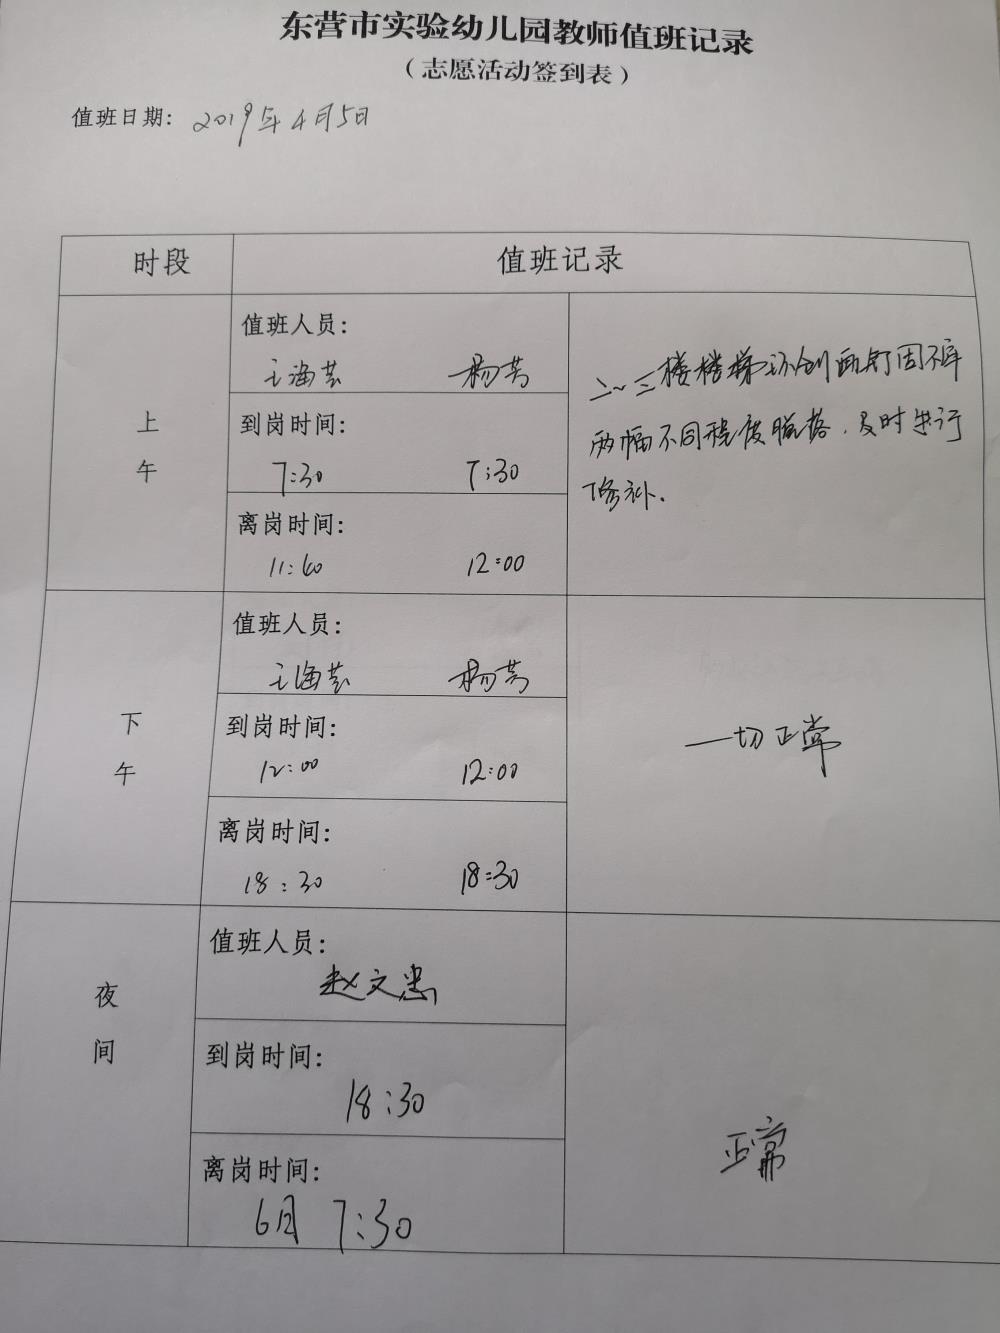 东营市实验幼儿园教师值班记录
（志愿活动签到表）
值班日期：2019年4月5日
时段
值班记录
上午
值班人员：
王海芸 杨芳
到岗时间：
7:30 7:30
离岗时间：
11:40 12:00
二~三楼楼梯环创画钉固不牢
两幅不同程度脱落，及时进行
修补.
下午
值班人员：
王海芸 杨芳
到岗时间：
12:00 12:00
离岗时间：
18:30 18:30
一切正常
夜间
值班人员：
赵文忠
到岗时间：
18:30
离岗时间：
6日 7:30
正常